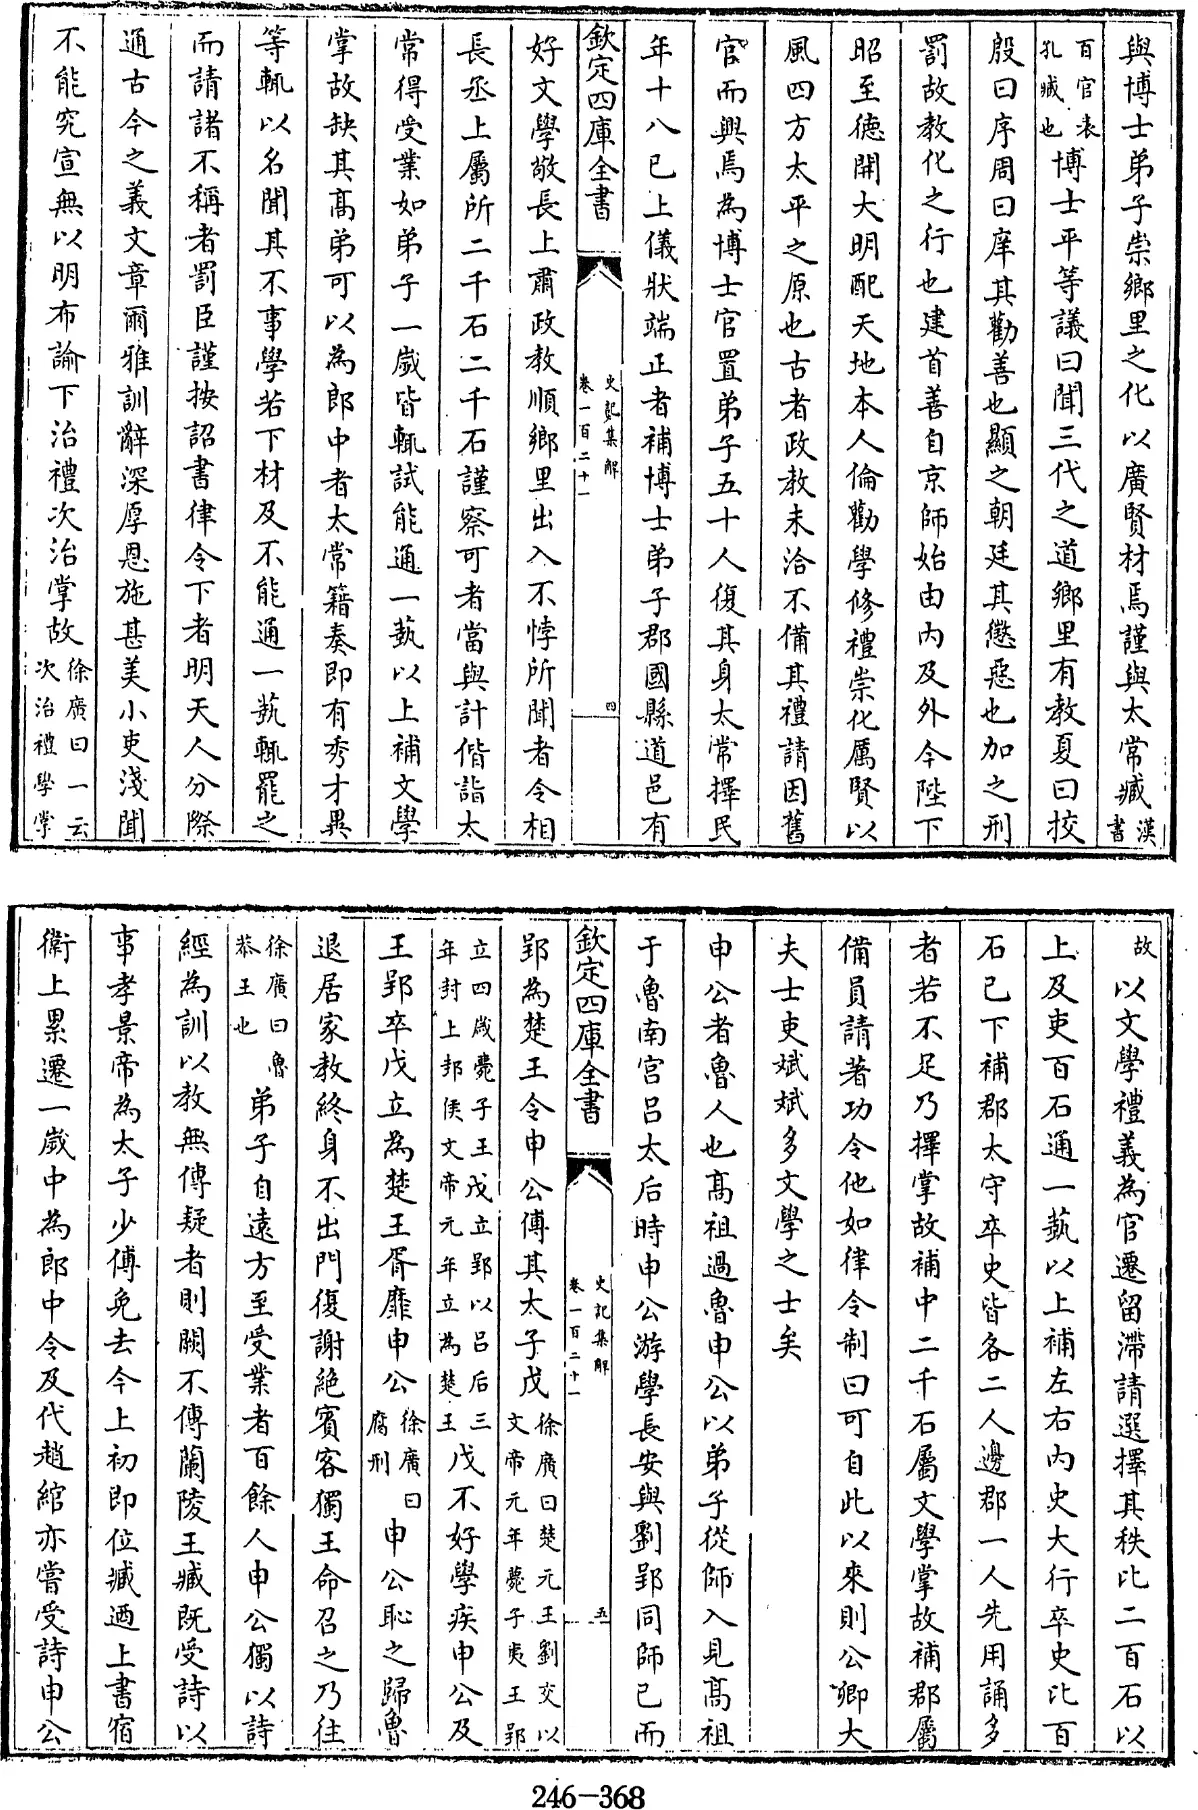 與博士弟子崇鄉里之化以廣賢材焉謹與太常臧漢書
百官表孔臧也博士平等議曰聞三代之道鄉里有教夏曰挍
殷曰序周曰庠其勸善也顯之朝廷其懲惡也加之刑
罰故教化之行也建首善自京師始由內及外今陛下
昭至德開大明配天地本人倫勸學修禮崇化厲賢以
風四方太平之原也古者政教未洽不備其禮請因舊
官而興焉為博士官置弟子五十人復其身太常擇民
年十八已上儀狀端正者補博士弟子郡國縣道邑有
欽定四庫全書
史記集解
卷一百二十一
四
好文學敬長上肅政教順鄉里出入不悖所聞者令相
長丞上屬所二千石二千石謹察可者當與計偕詣太
常得受業如弟子一歲皆輒試能通一藝以上補文學
掌故缺其髙弟可以為郎中者太常籍奏即有秀才異
等輒以名聞其不事學若下材及不能通一藝輒罷之
而請諸不稱者罰臣謹按詔書律令下者明天人分際
通古今之義文章爾雅訓辭深厚恩施甚美小吏淺聞
不能究宣無以明布諭下治禮次治掌故徐廣曰一云次治禮學掌
故以文學禮義為官遷留滯請選擇其秩比二百石以
上及吏百石通一藝以上補左右內史大行卒史比百
石已下補郡太守卒史皆各二人邊郡一人先用誦多
者若不足乃擇掌故補中二千石屬文學掌故補郡屬
備員請著功令他如律令制曰可自此以來則公卿大
夫士吏斌斌多文學之士矣
申公者魯人也髙祖過魯申公以弟子從師入見髙祖
于魯南宮呂太后時申公游學長安與劉郢同師已而
欽定四庫全書
史記集解
卷一百二十一
五
郢為楚王令申公傅其太子戊徐廣曰楚元王劉交以文帝元年薨子夷王郢
立四歲薨子王戊立郢以呂后三年封上邳侯文帝元年立為楚王戊不好學疾申公及
王郢卒戊立為楚王胥靡申公徐廣曰腐刑申公恥之歸魯
退居家教終身不出門復謝絶賓客獨王命召之乃往
徐廣曰魯恭王也弟子自遠方至受業者百餘人申公獨以詩
經為訓以教無傳疑者則闕不傳蘭陵王臧既受詩以
事孝景帝為太子少傅免去今上初即位臧迺上書宿
衛上累遷一歲中為郎中令及代趙綰亦嘗受詩申公
246-368